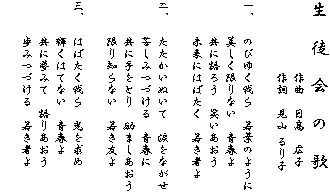 生徒会の歌
作曲 日高 広子
作詞 見山 るり子
一、のびゆく我ら 若葉のように
美しく限りない 青春よ
共に語ろう 笑いあおう
未来にはばたく 若き者よ
二、たたかいぬいて 涙をながせ
苦しみつづける 青春に
共に手をとり 励ましあおう
限り知らない 若き友よ
三、はばたく我ら 光を求め
輝くはてない 青春よ
共に夢みて 語りあおう
歩みつづける 若き者よ